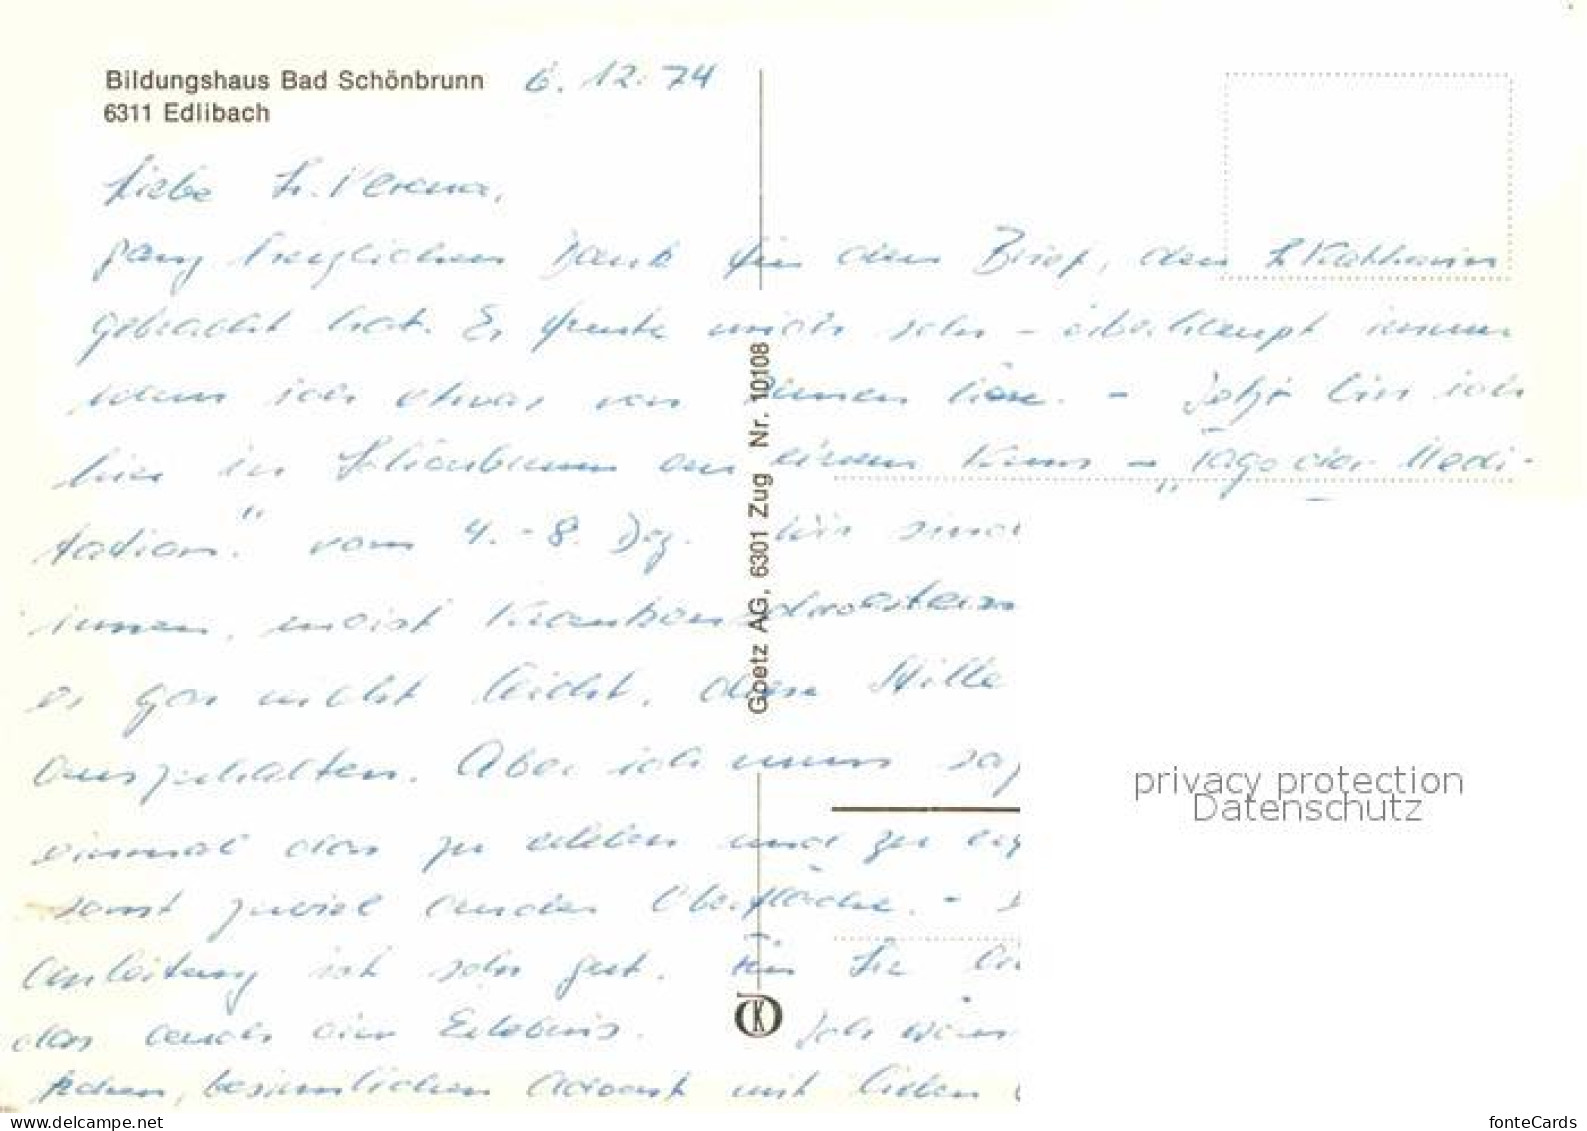 Bildungshaus Bad Schönbrunn 6. 12. 74
6311 Edlibach
Liebe Sr. Verena,
ganz herzlichen Dank für den Brief, den Sr Katharina
gebracht hat. Es freute mich sehr - überhaupt immer
wenn ich etwas von Ihnen höre. - Jetzt bin ich
hier in Schönbrunn an einem Kurs - „Tage der Medi-
tation." vom 4. - 8. Dez. Wir sind
innen, meist Krankenschwestern
es gar nicht leicht, diese Stille
auszuhalten. Aber ich muss sag
einmal das zu erleben und zu
sonst zuviel an der Oberfläche. -
Anleitung ist sehr gut. Für Sie
das auch ein Erlebnis. Ich wün
schönen, besinnlichen Advent mit lieben
Goetz AG, 6301 Zug Nr. 10108
K
privacy protection
Datenschutz
www.ansichtskartenversand.com
fonteCards